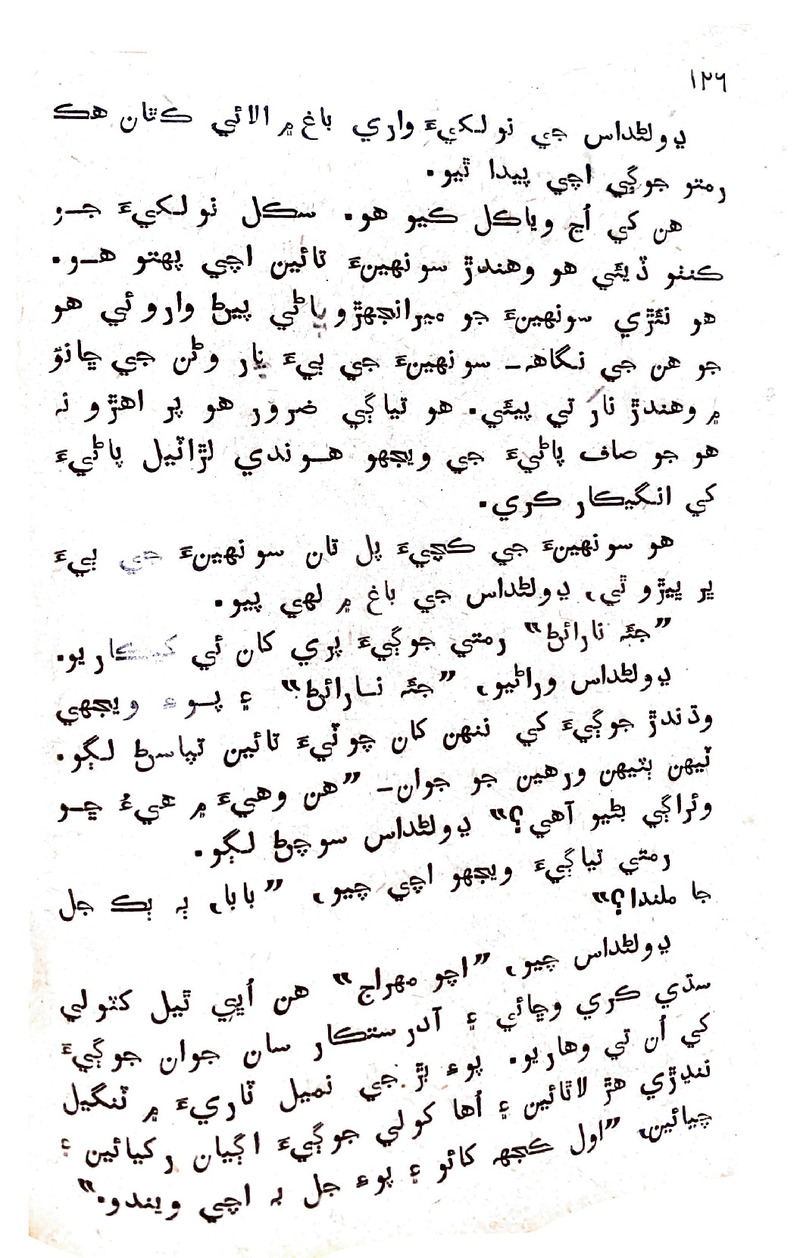 ١٢٦
ڊولڻداس جي نولکيءَ واري باغ ۾ الائي ڪٿان هڪ
رمتو جوڳي اچي پيدا ٿيو.
هن کي اُڃ وياڪل ڪيو هو. سڪل نولکيءَ جو
ڪنٺو ڏيئي هو وهندڙ سونهينءَ تائين اچي پهتو هو.
هو نئڙي سونهينءَ جو ميرانجهڙو پاڻي پيئڻ وارو ئي هو
جو هن جي نگاهه_ سونهينءَ جي ٻيءَ پار وڻن جي ڇانوَ
۾ وهندڙ نار تي پيئي. هو تياڳي ضرور هو پر اهڙو نہ
هو جو صاف پاڻيءَ جي ويجهو هوندي لڙاٽيل پاڻيءَ
کي انگيڪار ڪري.
هو سونهينءَ جي ڪچيءَ پل تان سونهينءَ جي ٻيءَ
ڀر ڀيڙو ٿي، ڊولڻداس جي باغ ۾ لهي پيو.
”جئہ نارائڻ“ رمتي جوڳيءَ پري کان ئي کيڪاريو.
ڊولڻداس وراڻيو، ”جئہ نارائڻ“ ۽ پوءِ ويجهي
وڌندڙ جوڳيءَ کي ننهن کان چوٽيءَ تائين تپاسڻ لڳو.
ٽيهن ٻٽيهن ورهين جو جوان_ ”هن وهيءَ ۾ هيءُ ڇو
وئراڳي بڻيو آهي؟“ ڊولڻداس سوچڻ لڳو.
رمتي تياڳيءَ ويجهو اچي چيو، ”بابا، ٻہ ٻڪ جل
جا ملندا؟“
ڊولڻداس چيو، ”اچو مهراج“ هن اُڀي ٿيل کٽولي
سڌي ڪري وڇائي ۽ آدر ستڪار سان جوان جوڳيءَ
کي اُن تي وهاريو. پوءِ بڙ جي نميل ٽاريءَ ۾ ٽنگيل
ننڍڙي هڙ لاٿائين ۽ اُها کولي جوڳيءَ اڳيان رکيائين ۽
چيائين، ”اول ڪجهہ کائو ۽ پوءِ جل بہ اچي ويندو.“